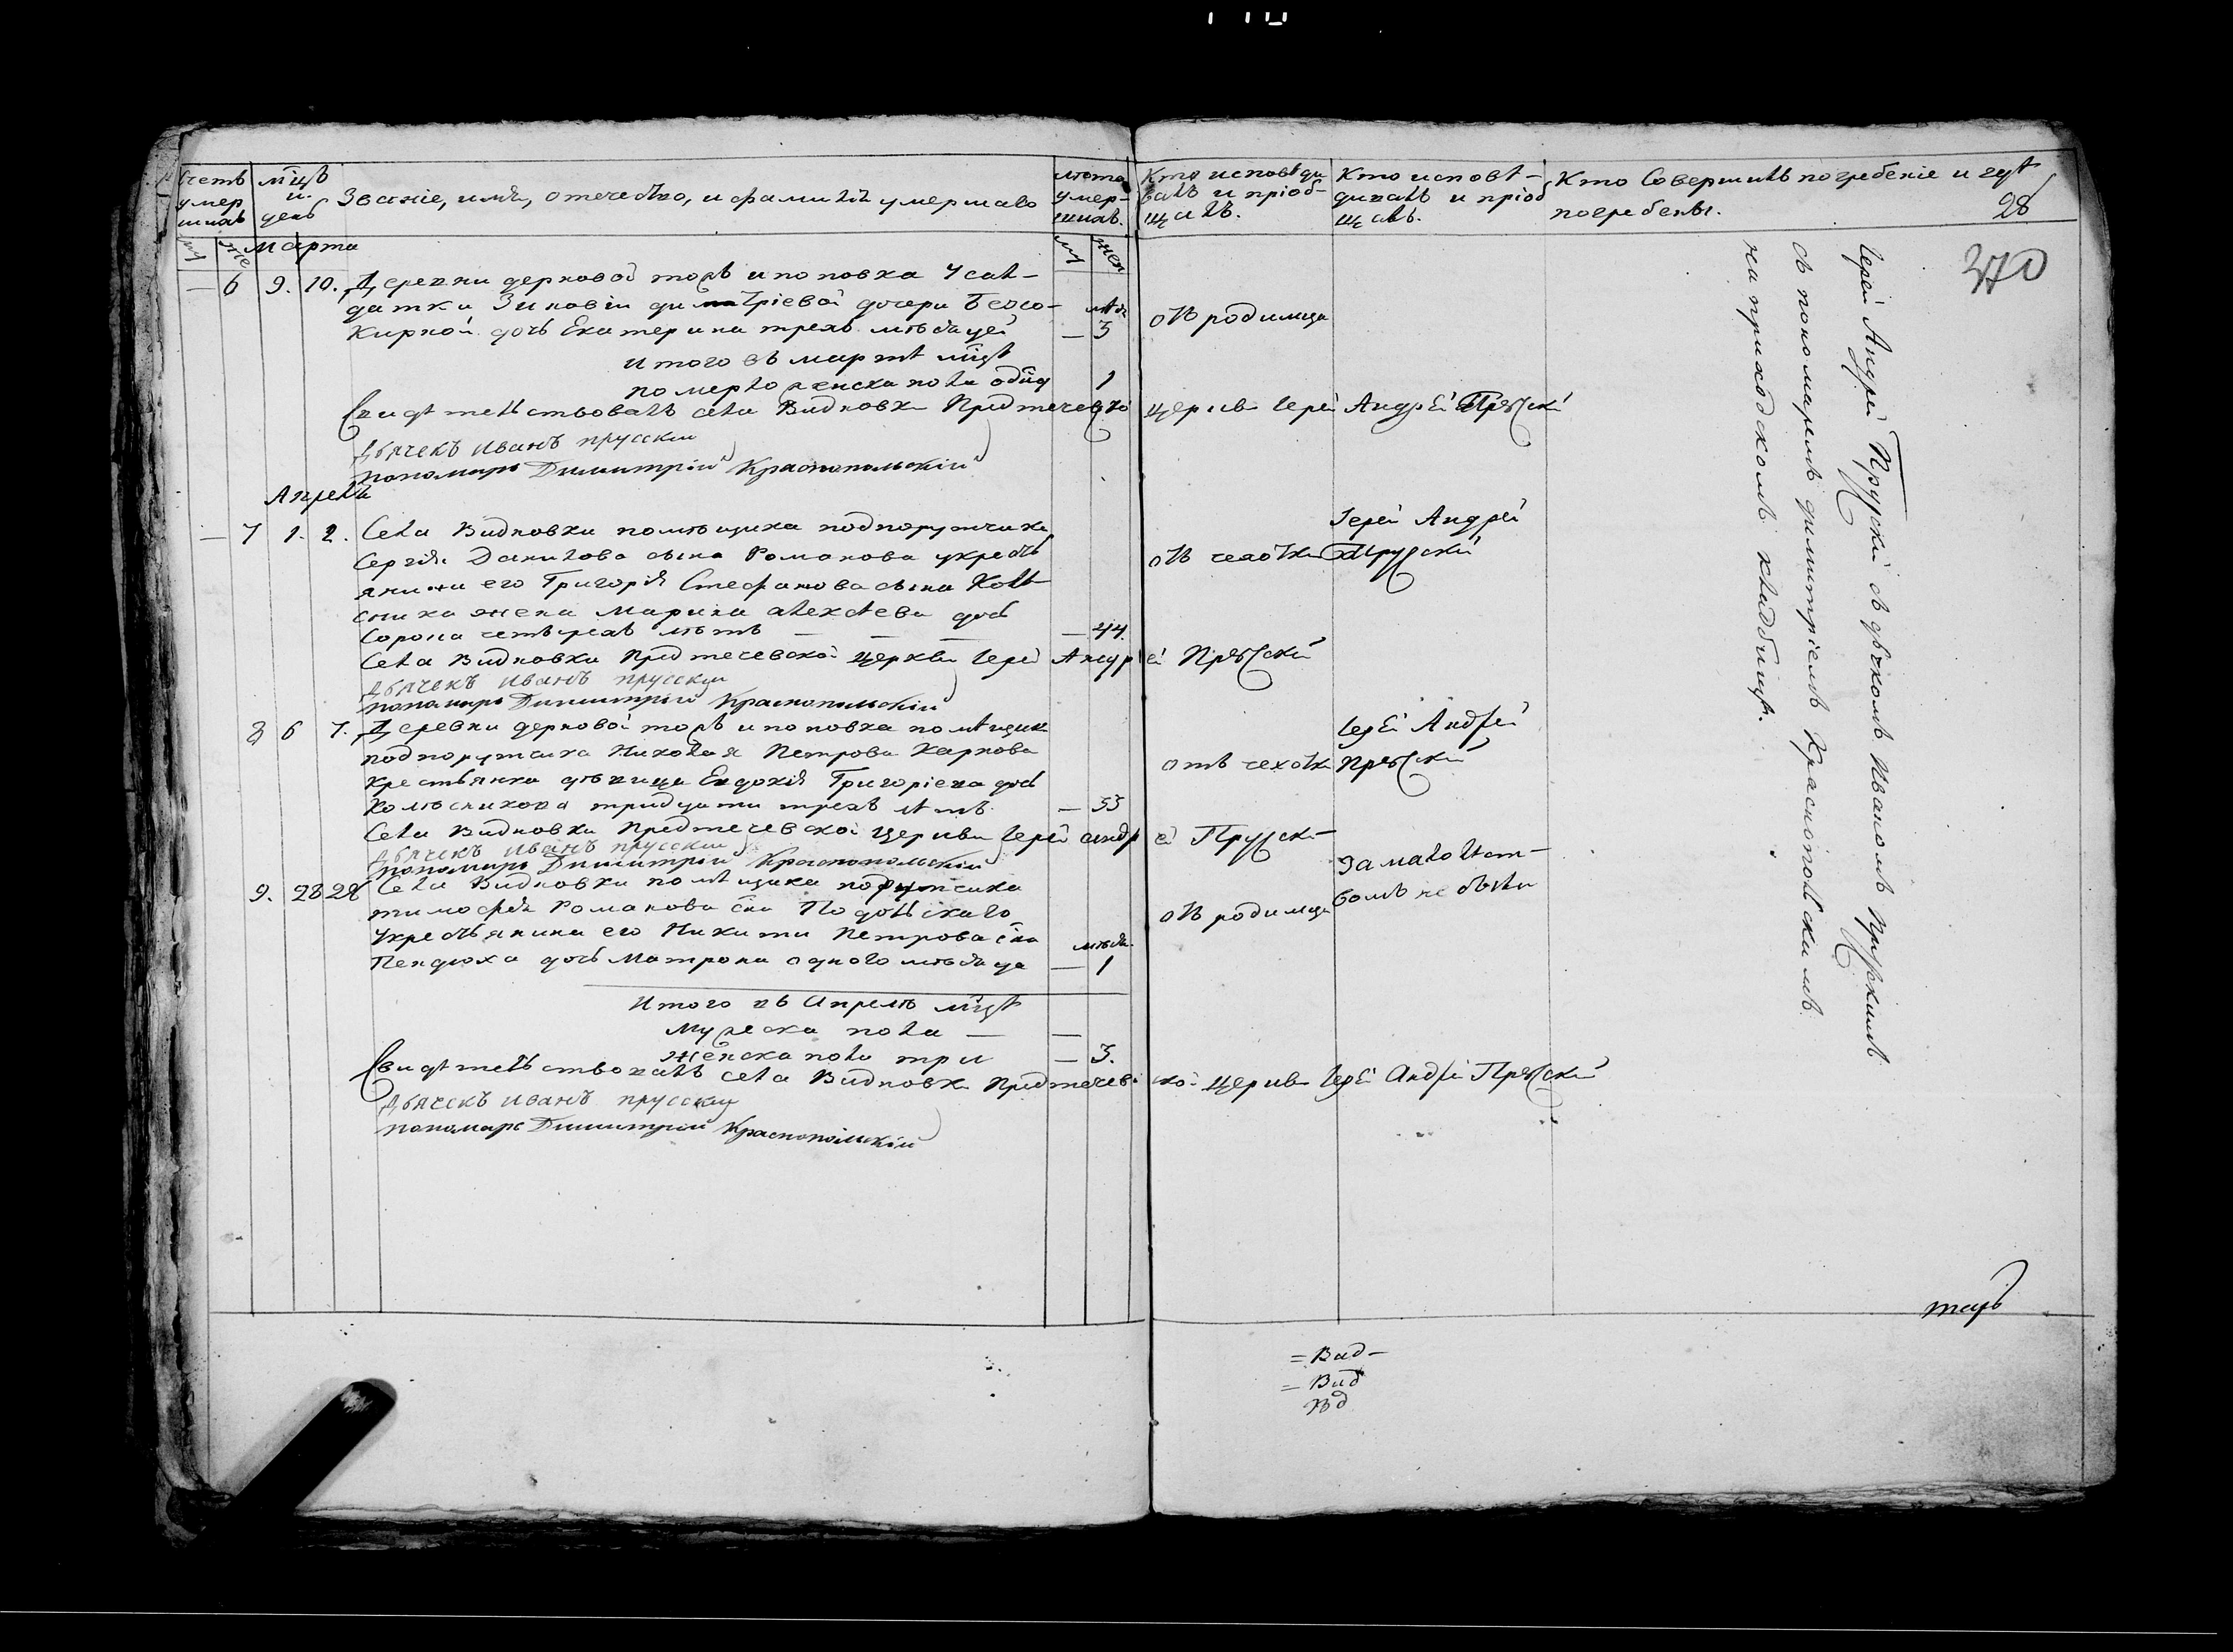 Счетъ умершихъ
мцъ и день
Званіе, имя, отечество, и фамилія умершаго
лѣта умершихъ.
Кто исповѣдывалъ и пріобщалъ.
Кто исповѣдывалъ и пріобщалъ.
Кто Совершалъ погребеніе и гдѣ погребены.
28
370
марта
— 6 9. 10. Деревни дерновой тожъ и поповка Усал-
датки Зиновіи димитріевой дочери Бело-
Курной дочь Екатерина трехъ мѣсяцей — 3
отъ родимца
итого въ мартѣ мцѣ
померло женска пола 1
Свидѣтельствовалъ села Видновки Предтечевской церкви Іерей Андрей Прускій
Дьячекъ Иванъ прусскии
пономарь Димитрій Краснопольскій
Апреля
— 7 1. 2. Села Видновки помѣщика подпорутчика
Сергія Данилова сына Романова укресть
янина его Григорія Стефанова сына Коле
сника жена Марина алексѣева дочь
Сорока четырехъ лѣтъ — — — — 44.
отъ чехотки
Іерей Андрей
Прускій
Села Видновки Предтечевской церкви Іерей Андрей Прускій
Дьячекъ Иванъ прусскии
пономарь Димитрій Краснопольскій
8 6 7. Деревни дерновой тожъ и поповка помѣщика
подпорутчика Николая Петрова Карпова
Крестьянка дѣвица Евдокія Григоріева дочь
Колѣсникова тридцати трехъ лѣтъ. — 33
отъ чехотки
Іерей Андрей
Прускій
Села Видновки Предтечевской церкви Іерей андрей Прускі
Дьячекъ Иванъ прусскии
пономарь Димитрій Краснопольскій
9. 28 28 Села Видновки помѣщика порутчика
тимофея Романова сна Подольскаго
Укрестьянина его Никити Петрова сна
Пендюха дочь Матрона одного мѣсяца — 1
отъ родимца
За малолѣт-
вомъ не были
Итого въ Апрелѣ мцѣ
Мужеска пола — —
женска пола три — 3.
Свидѣтельствовалъ села Видновки Предтечевской церкви Іерей Андрей Прускій
Дьячекъ Иванъ прусскии
пономарь Димитрій Краснопольскій
Іерей Андрей Прускій съ дьячкомъ Иваномъ Прускимъ
съ пономаремъ димитріемъ Краснопольскимъ
на приходскомъ кладбищѣ.
= Вид –
= Вид
Вд